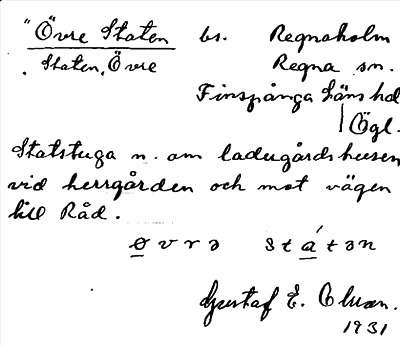 "Övre Staten bs. Regnaholm
Staten, Övre Regna sn.
Finspånga läns hd
Ögl.
Statstuga n. om ladugårdshusen
vid herrgården och mot vägen
till Råd.
ø v r ə s t á t ə n
Gustaf E. Olsson.
1931